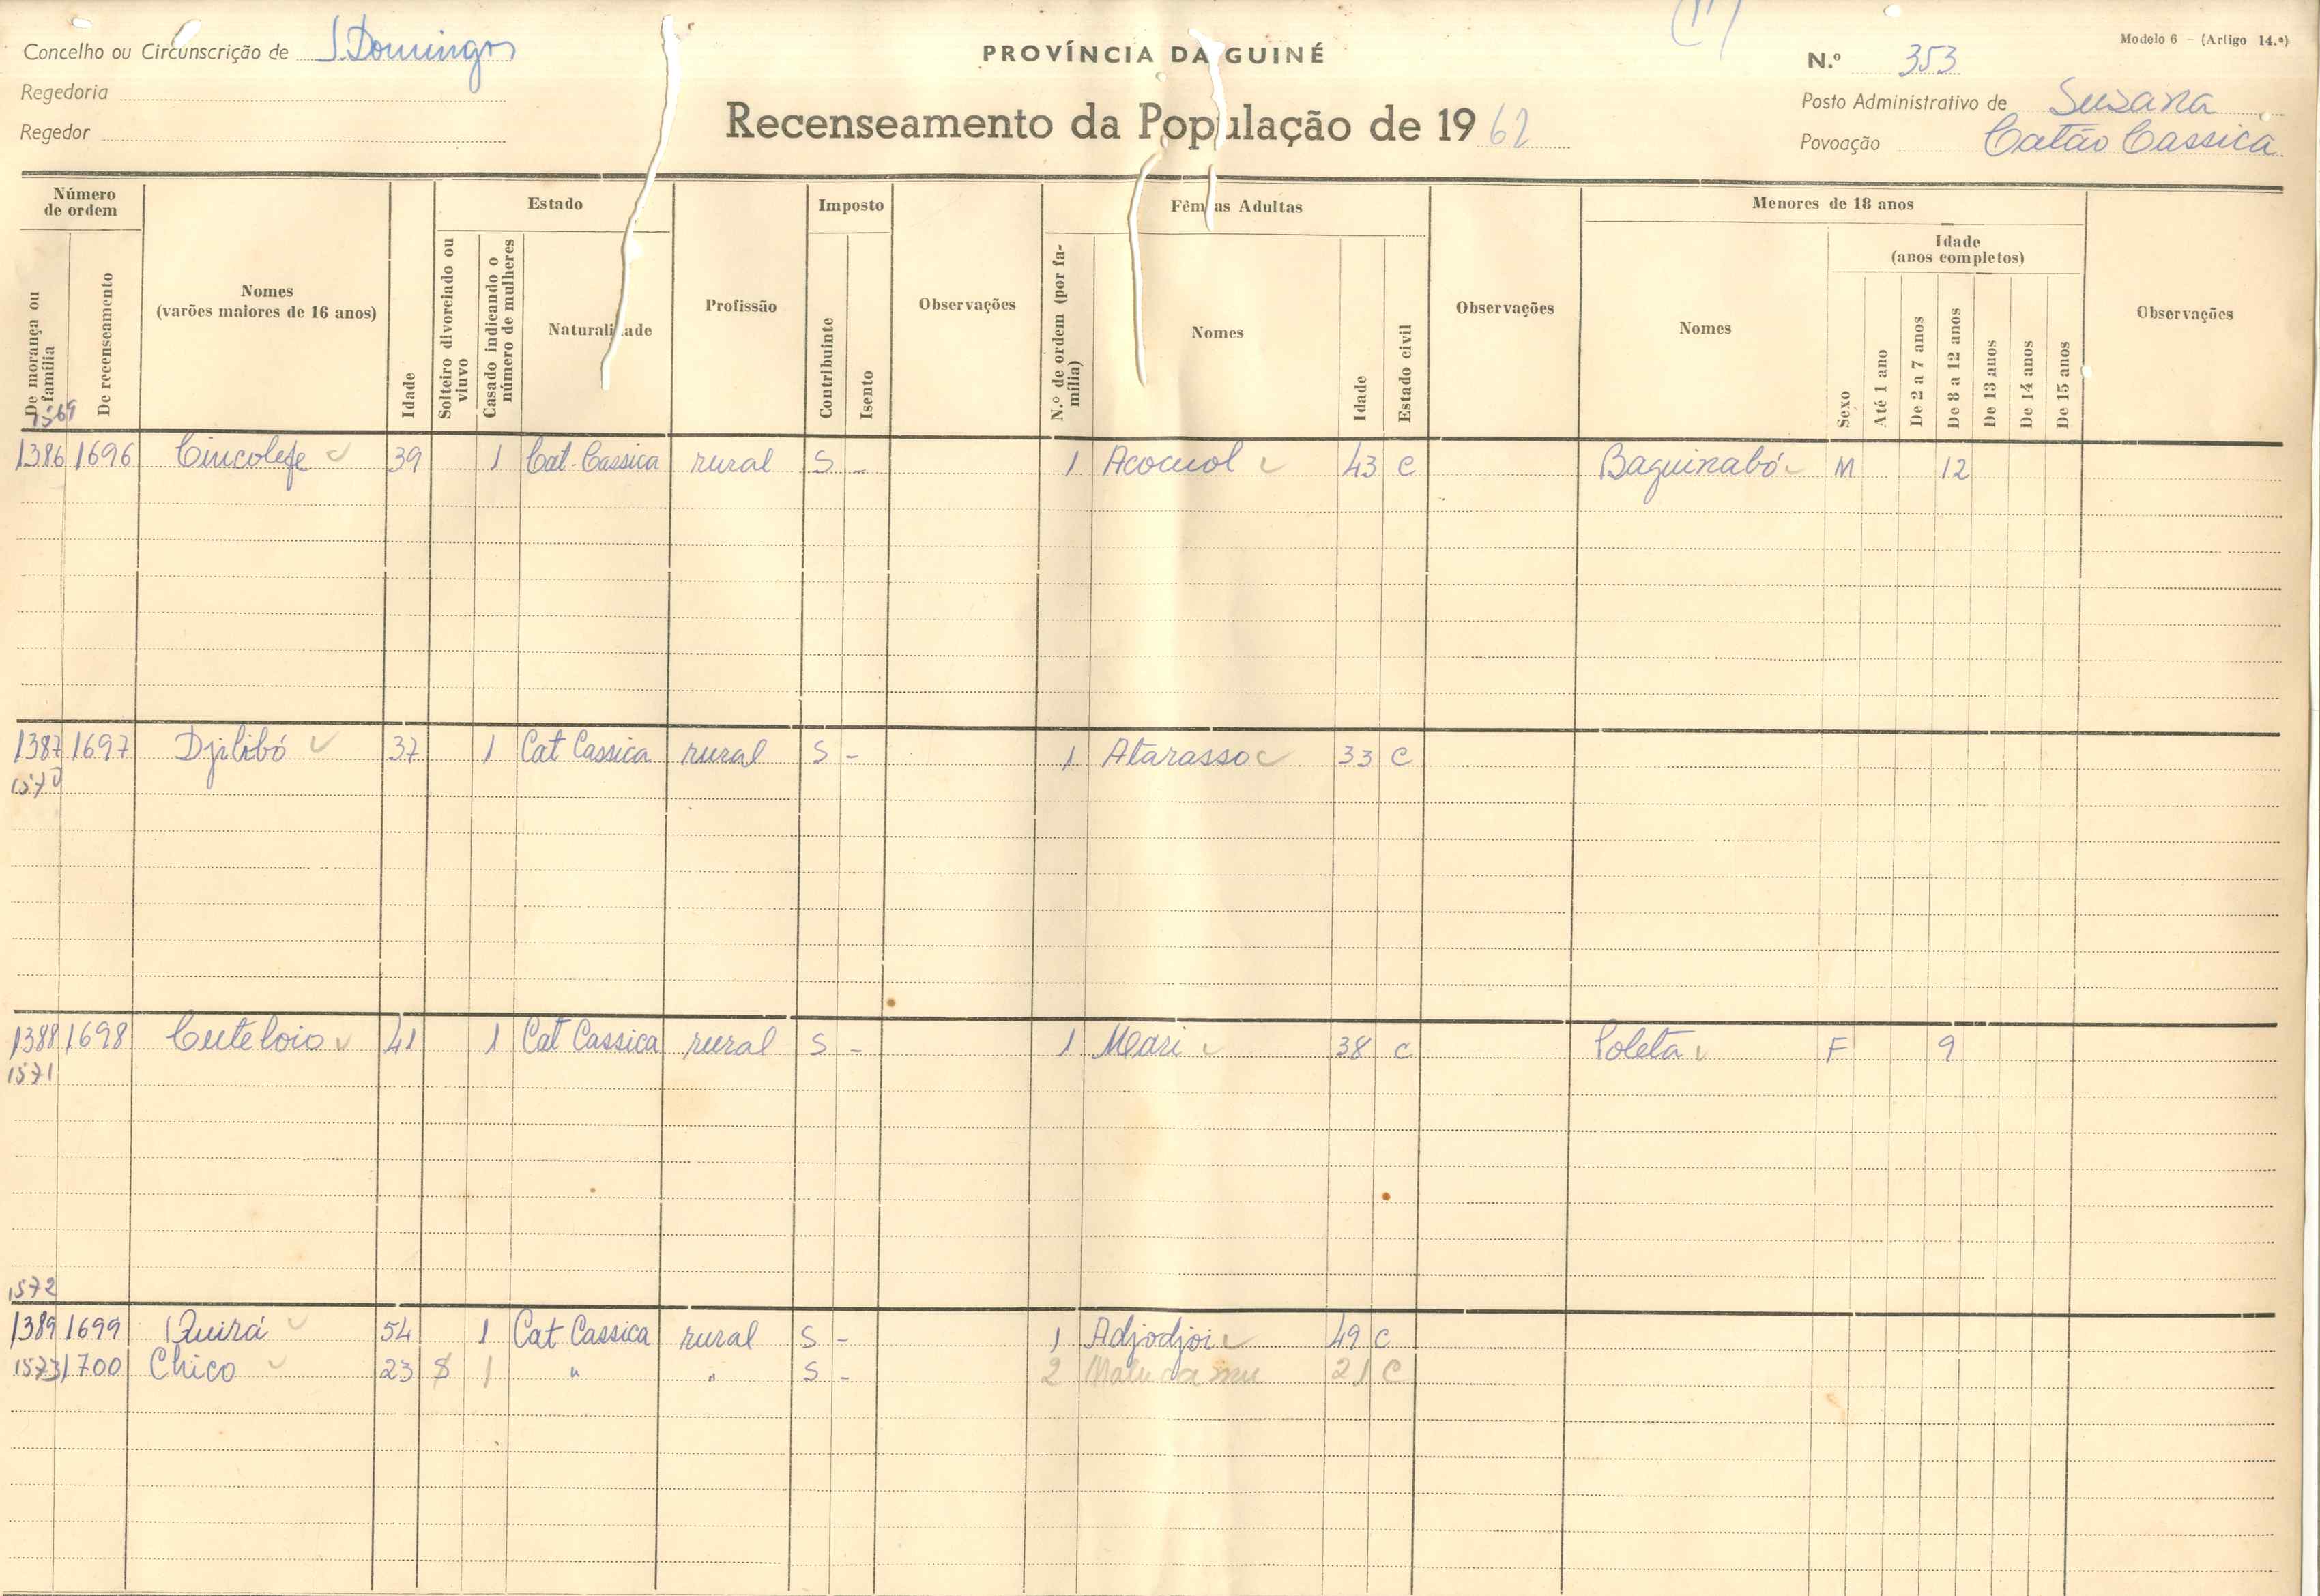 Modelo 6 — (Artigo 14.º)
Concelho ou Circunscrição de S. Domingos
PROVÍNCIA DA GUINÉ
N.º 353
Regedoria
Recenseamento da População de 1962
Posto Administrativo de Suzana
Regedor
Povoação Catão Cassica
Número de ordem
Nomes (varões maiores de 16 anos)
Idade
Estado
Profissão
Imposto
Observações
Fêmeas Adultas
Observações
Menores de 18 anos
Observações
De morança ou família
De recenseamento
Solteiro divorciado ou viuvo
Casado indicando o número de mulheres
Naturalidade
Contribuinte
Isento
N.º de ordem (por família)
Nomes
Idade
Estado civil
Nomes
Sexo
Idade (anos completos)
Até 1 ano
De 2 a 7 anos
De 8 a 12 anos
De 13 anos
De 14 anos
De 15 anos
1569
1386 1696 Cincolefe 39 1 Cat. Cassica rural S - 1 Acocuol 43 C Baguinabó M 12
1387 1697 Djilibó 37 1 Cat Cassica rural S - 1 Atarasso 33 C
1570
1388 1698 Cuteloio 41 1 Cat Cassica rural S - 1 Mari 38 C Poleta F 9
1571
1572
1389 1699 Quirá 54 1 Cat Cassica rural S - 1 Adjodjoi 49 C
1573 1700 Chico 23 S 1 " " S - 2 21 C